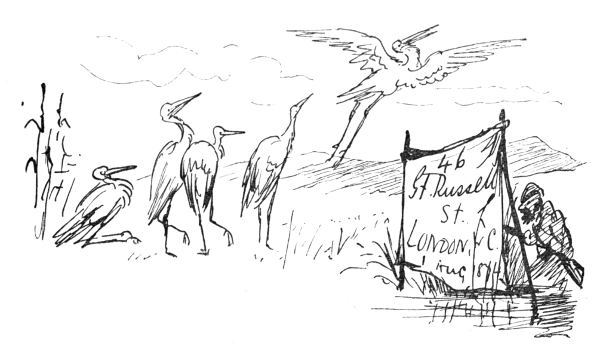 46
Gt. Russell
St.
LONDON, W.C.
1 Aug 1874